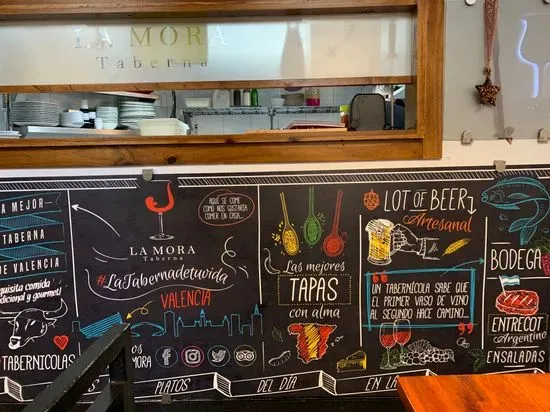 LA MORA
Taberna
A MEJOR
TABERNA
DE VALENCIA
gourmet
#TABERNÍCOLAS
AQUÍ SE COME
COMO NOS GUSTARÍA
COMER EN CASA...
LA MORA
Taberna
#LaTabernadetuvida
VALENCIA
MORA
Las mejores
TAPAS
con alma
LOT OF BEER
Artesanal
UN TABERNÍCOLA SABE QUE
EL PRIMER VASO DE VINO
AL SEGUNDO HACE CAMINO...
BODEGA
ENTRECOT
Argentino
ENSALADAS
PLATOS
DEL DÍA
EN LA